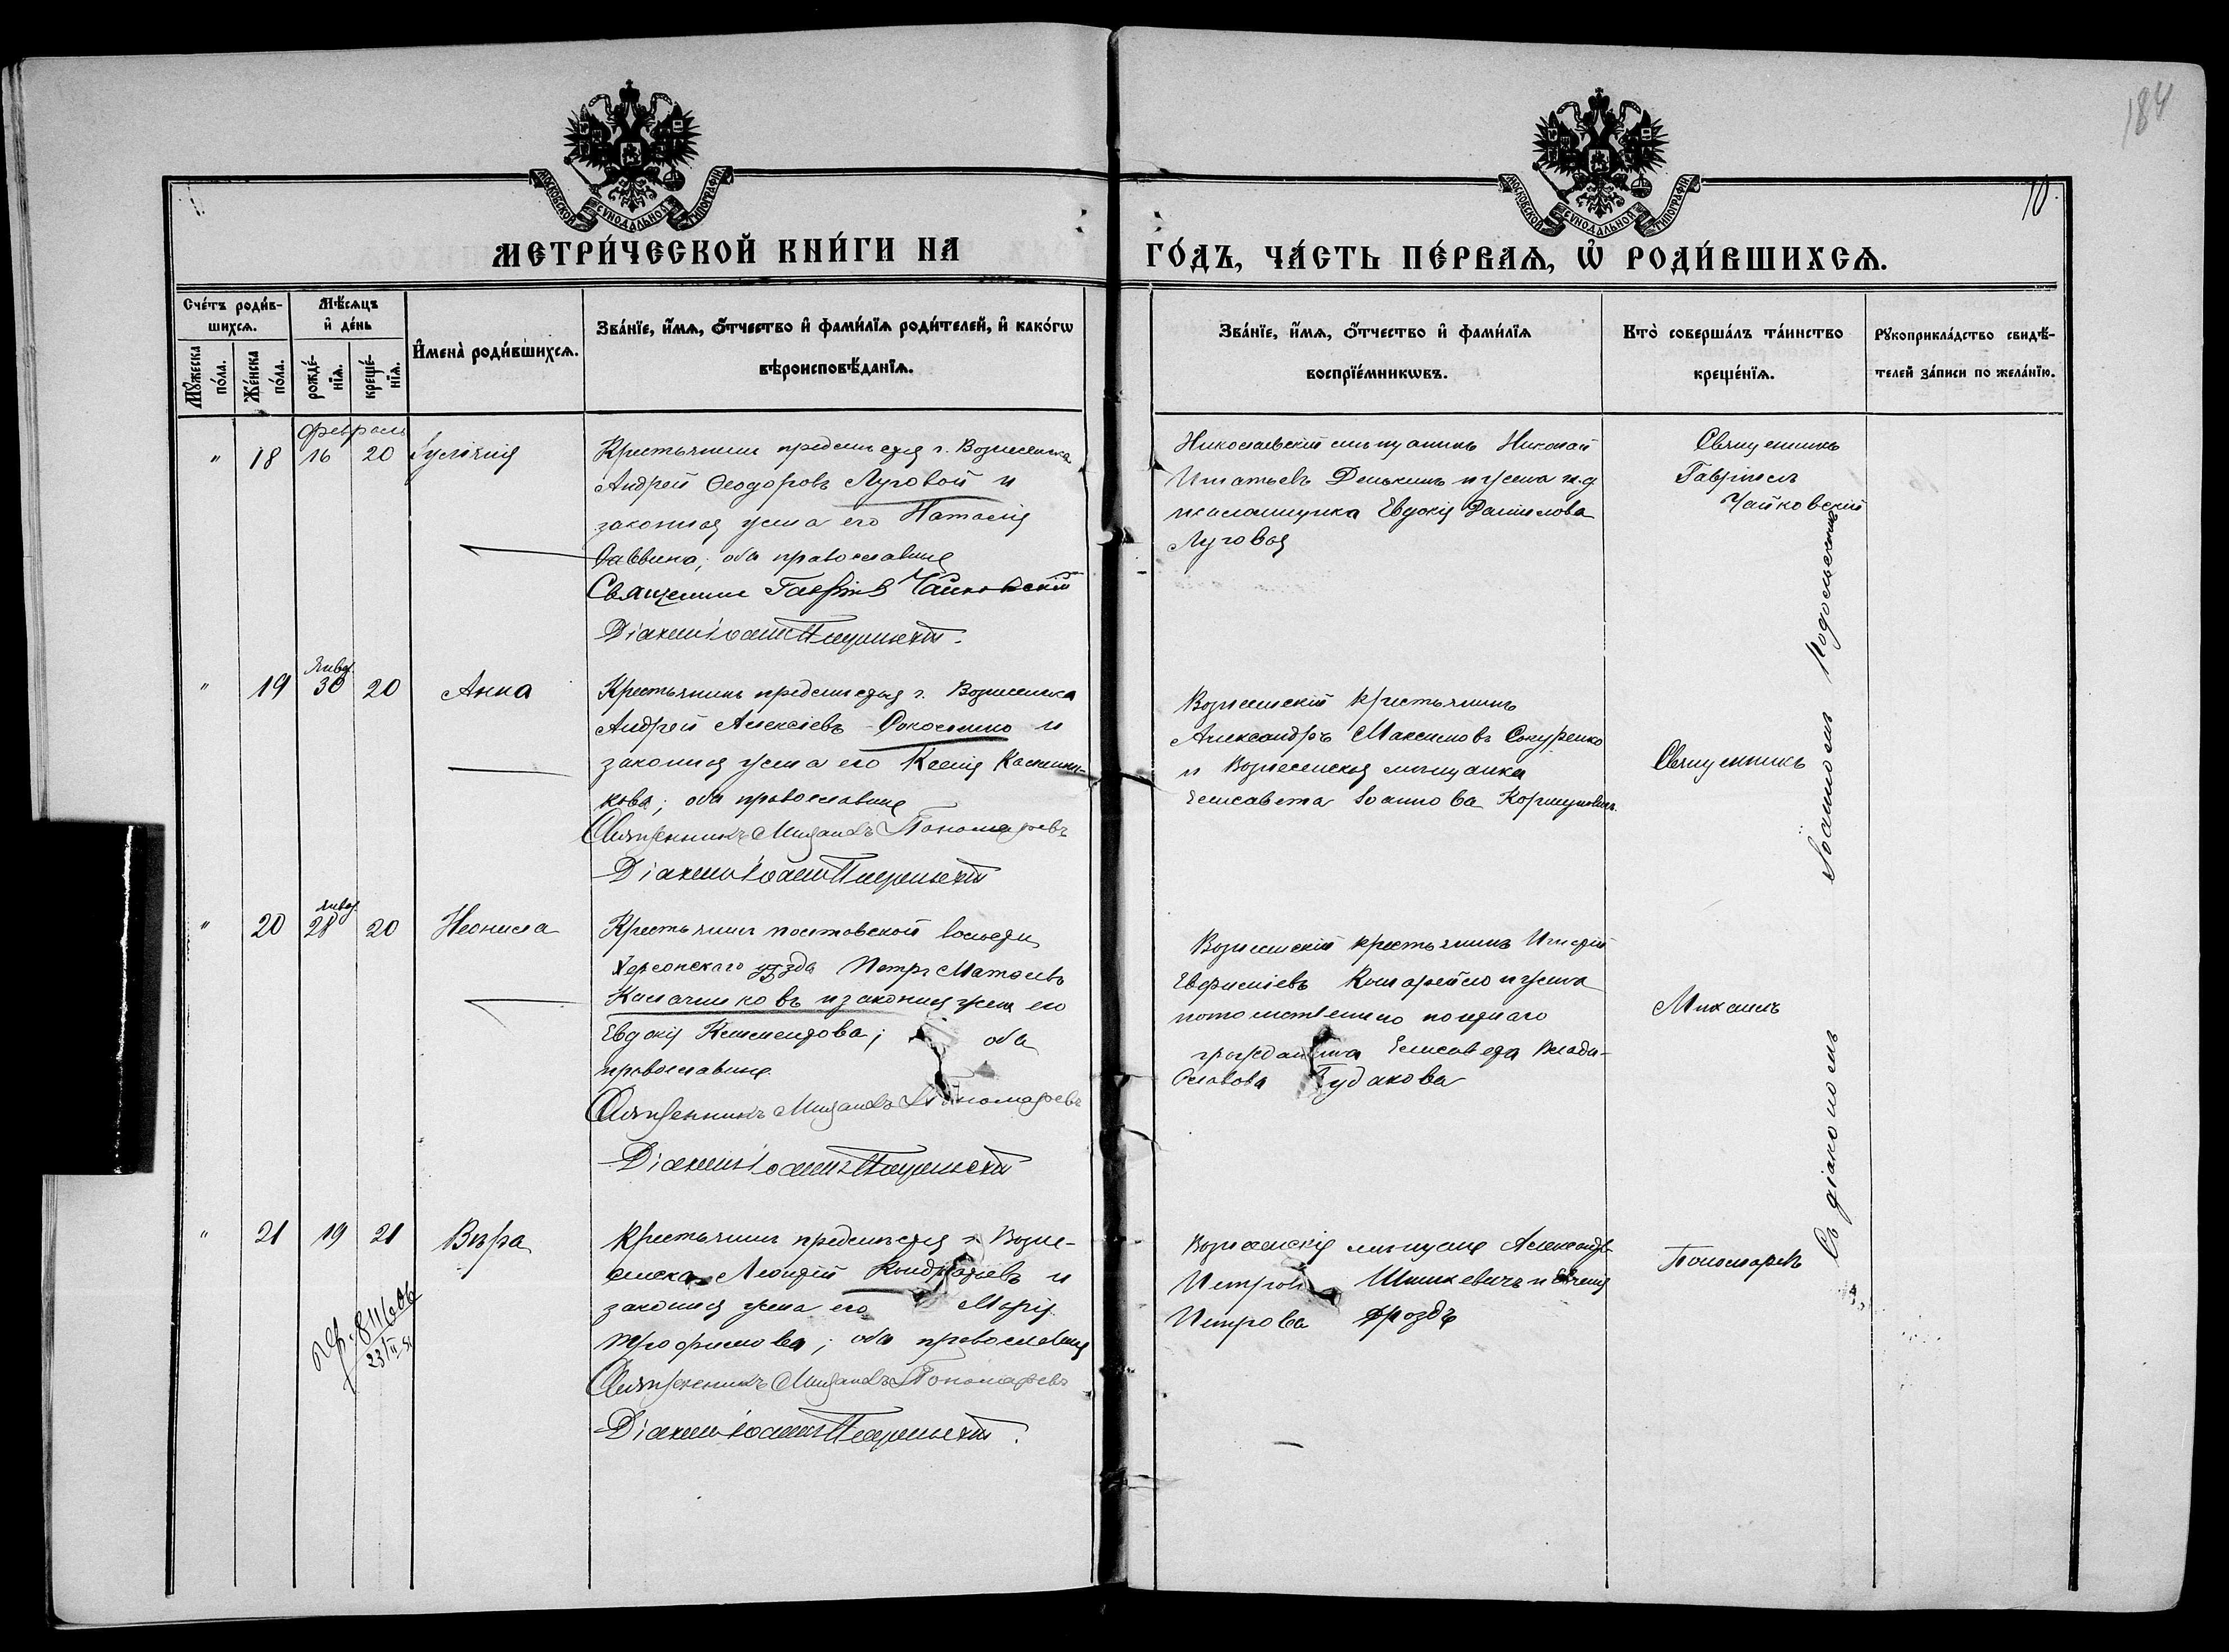 184
10
МОСКОВСКОЙ СѴНОДАЛЬНОЙ ТИПОГРАФІИ
МОСКОВСКОЙ СѴНОДАЛЬНОЙ ТИПОГРАФІИ
МЕТРИ́ЧЕСКОЙ КНИ́ГИ НА ГО́ДЪ, ЧА́СТЬ ПЕ́РВАѦ, Ѡ҆ РОДИ́ВШИХСѦ.
Сче́тъ роди́в-
шихсѧ.
Мꙋ́жеска по́ла.
Же́нска по́ла.
Мѣ́сѧцъ
и҆ де́нь
рожде́-
нїѧ.
креще́-
нїѧ.
И҆мена̀ роди́вшихсѧ.
Зва́нїе, и҆́мѧ, ѻ҆́тчество и҆ фами́лїѧ роди́телей, и҆ како́гѡ
вѣроисповѣ́данїѧ.
Зва́нїе, и҆́мѧ, ѻ҆́тчество и҆ фами́лїѧ
воспрїе́мникѡвъ.
Кто̀ соверша́лъ та́инство
креще́нїѧ.
Рꙋкоприкла́дство свидѣ́-
телей за́писи по жела́нїю.
Февраль
" 18 16 20 Іуліанія
Крестьянинъ предмѣстья г. Вознесенска
Андрей Ѳеодоровъ Луговой и
законная жена его Наталія
Саввина; оба православные
Священникъ Гавріилъ Чайковскій
Діаконъ Іоаннъ
Николаевскій мѣщанинъ Николай
Игнатьевъ Денькинъ и жена
Евдокія Данилова
Луговая
Священникъ
Гавріилъ
Чайковскій
Январ.
" 19 30 20 Анна
Крестьянинъ предмѣстья г. Вознесенска
Андрей Алексѣевъ и
законная жена его Ксенія
оба православные
Священникъ Михаилъ Пономаревъ
Діаконъ Іоаннъ
Вознесенскій крестьянинъ
Александръ Максимовъ Сокуренко
и Вознесенская мѣщанка
Елисавета Іоаннова
Священникъ
Январ.
" 20 28 20 Неонила
Крестьянинъ волости
Херсонскаго уѣзда Петръ Матѳеевъ
Калачниковъ и законная жена его
Евдокія Климентова; оба
православные.
Священникъ Михаилъ Пономаревъ
Діаконъ Іоаннъ
Вознесенскій крестьянинъ
и жена
потомственно почетнаго
гражданина Елисавета Влади-
славова Гудакова
Михаилъ
" 21 19 21 Вѣра
Крестьянинъ предмѣстья г. Возне-
сенска и
законная жена его Марія
Трофимова; оба православные
Священникъ Михаилъ Пономаревъ
Діаконъ Іоаннъ
Вознесенскіе мѣщане Александръ
Петровъ Шинкевичъ и
Петрова Дроздъ
Пономаревъ
Съ діакономъ Іоанномъ